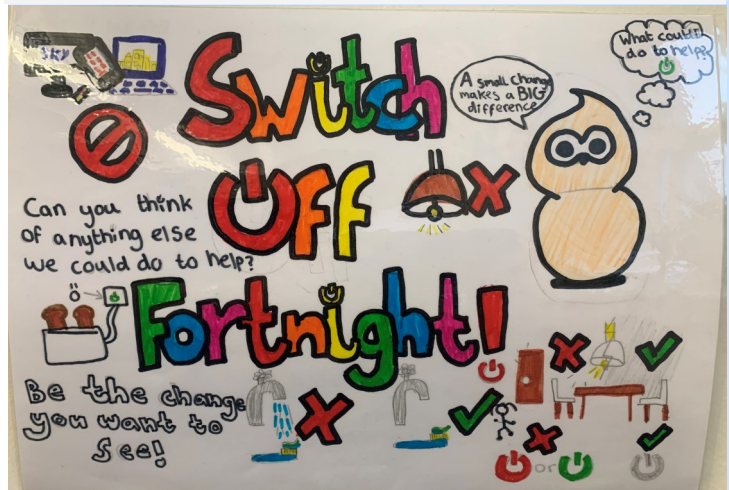 SKY
Switch
Off
Fortnight!
A small change
makes a BIG
difference
What could
do to help?
Can you think
of anything else
we could do to help?
Be the change
you want to
See!
or